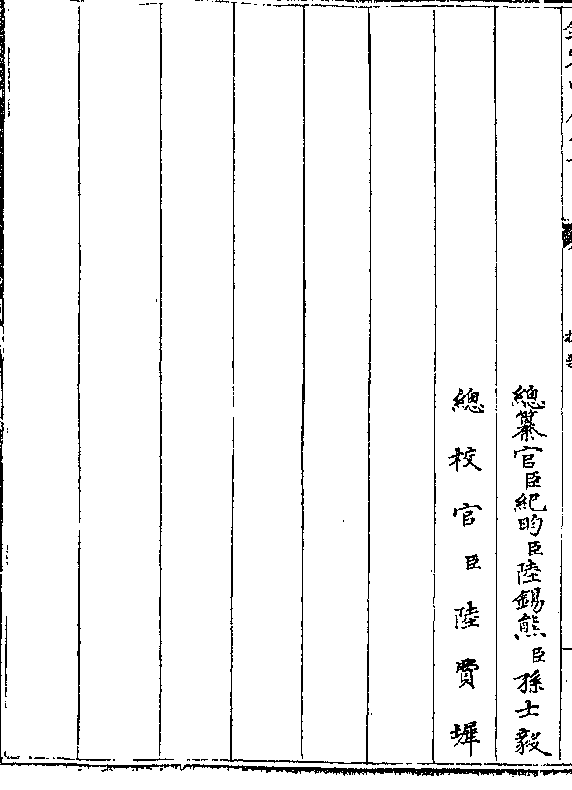 總纂官臣紀昀臣陸錫熊臣孫士毅
總校官臣陸費墀